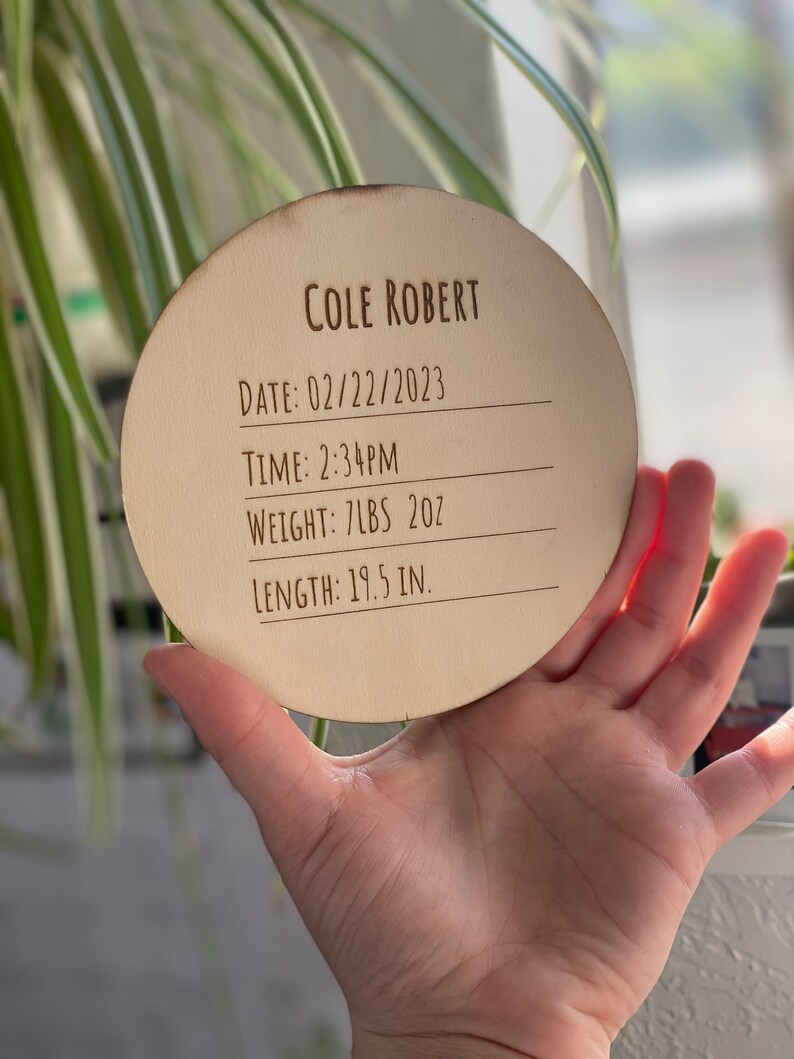 Cole Robert
Date: 02/22/2023
Time: 2:34pm
Weight: 7lbs 2oz
Length: 19.5 in.